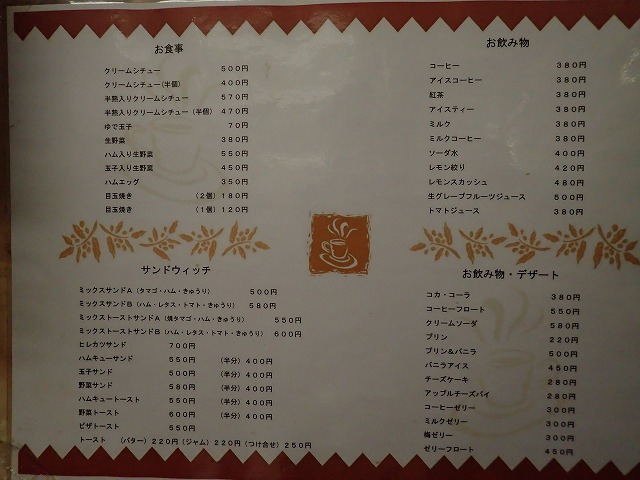 お食事
クリームシチュー 500円
クリームシチュー(半個) 400円
半熟入りクリームシチュー 570円
半熟入りクリームシチュー(半個) 470円
ゆで玉子 70円
生野菜 380円
ハム入り生野菜 550円
玉子入り生野菜 450円
ハムエッグ 350円
目玉焼き (2個)180円
目玉焼き (1個)120円
サンドウィッチ
ミックスサンドA(タマゴ・ハム・きゅうり) 500円
ミックスサンドB(ハム・レタス・トマト・きゅうり) 580円
ミックストーストサンドA(焼タマゴ・ハム・きゅうり) 550円
ミックストーストサンドB(ハム・レタス・トマト・きゅうり) 600円
ヒレカツサンド 700円
ハムキューサンド 550円 (半分)400円
玉子サンド 500円 (半分)400円
野菜サンド 580円 (半分)400円
ハムキュートースト 550円 (半分)400円
野菜トースト 600円 (半分)400円
ピザトースト 550円
トースト (バター)220円(ジャム)220円(つけ合せ)250円
お飲み物
コーヒー 380円
アイスコーヒー 380円
紅茶 380円
アイスティー 380円
ミルク 380円
ミルクコーヒー 380円
ソーダ水 400円
レモン絞り 420円
レモンスカッシュ 480円
生グレープフルーツジュース 500円
トマトジュース 380円
お飲み物・デザート
コカ・コーラ 380円
コーヒーフロート 550円
クリームソーダ 580円
プリン 220円
プリン&バニラ 500円
バニラアイス 450円
チーズケーキ 280円
アップルチーズパイ 280円
コーヒーゼリー 300円
ミルクゼリー 300円
梅ゼリー 300円
ゼリーフロート 450円